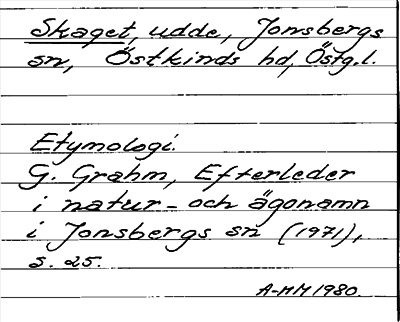 Skaget, udde, Jonsbergs
sn, Östkinds hd, Östg.l.
Etymologi.
G. Grahm, Efterleder
i natur- och ägonamn
i Jonsbergs sn (1971),
s. 25.
A-MM 1980.